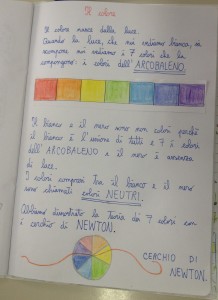 Il colore
Il colore nasce dalla luce.
Quando la luce, che noi vediamo bianca, si
scompone noi vediamo i 7 colori che la
compongono: i colori dell'ARCOBALENO.
Il bianco e il nero sono non colori perché
il bianco è l'unione di tutti e 7 i colori
dell'ARCOBALENO e il nero è assenza
di luce.
I colori compresi tra il bianco e il nero
sono chiamati colori NEUTRI.
Abbiamo dimostrato la teoria dei 7 colori con
il cerchio di NEWTON.
CERCHIO DI
NEWTON.